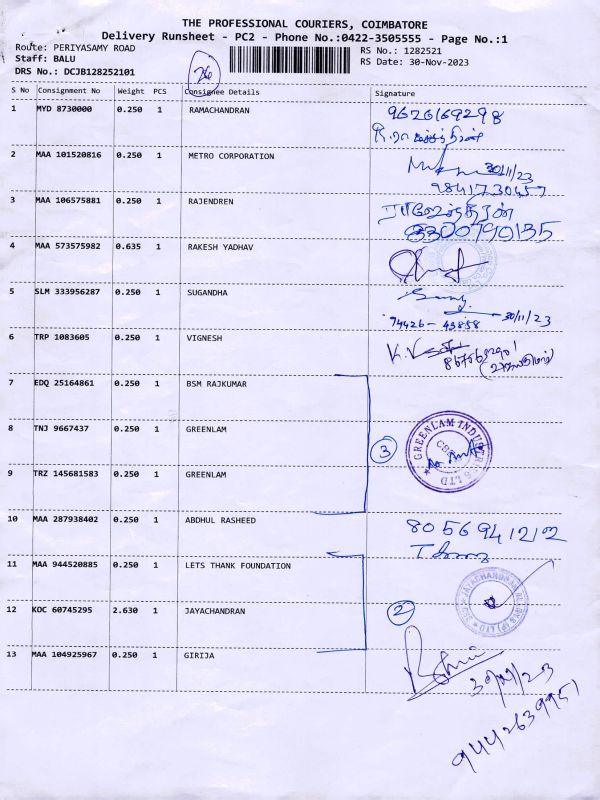 THE PROFESSIONAL COURIERS, COIMBATORE
Delivery Runsheet - PC2 - Phone No.:0422-3505555 - Page No.:1
Route: PERIYASAMY ROAD RS No.: 1282521
Staff: BALU RS Date: 30-Nov-2023
DRS No.: DCJB128252101
S No Consignment No Weight PCS Consignee Details Signature
1 MYD 8730000 0.250 1 RAMACHANDRAN 9626169298
2 MAA 101520816 0.250 1 METRO CORPORATION 30/11/23
9841730457
3 MAA 106575881 0.250 1 RAJENDREN ராஜேந்திரன்
4 MAA 573575982 0.635 1 RAKESH YADHAV
5 SLM 333956287 0.250 1 SUGANDHA 30/11/23
74426-43858
6 TRP 1083605 0.250 1 VIGNESH
7 EDQ 25164861 0.250 1 BSM RAJKUMAR
8 TNJ 9667437 0.250 1 GREENLAM 3 GREENLAM INDUSTRIES LTD
9 TRZ 145681583 0.250 1 GREENLAM
10 MAA 287938402 0.250 1 ABDHUL RASHEED 8056941212
11 MAA 944520885 0.250 1 LETS THANK FOUNDATION
12 KOC 60745295 2.630 1 JAYACHANDRAN 2 JAYACHANDRAN (P) LTD
13 MAA 104925967 0.250 1 GIRIJA
30/11/23
9442639951